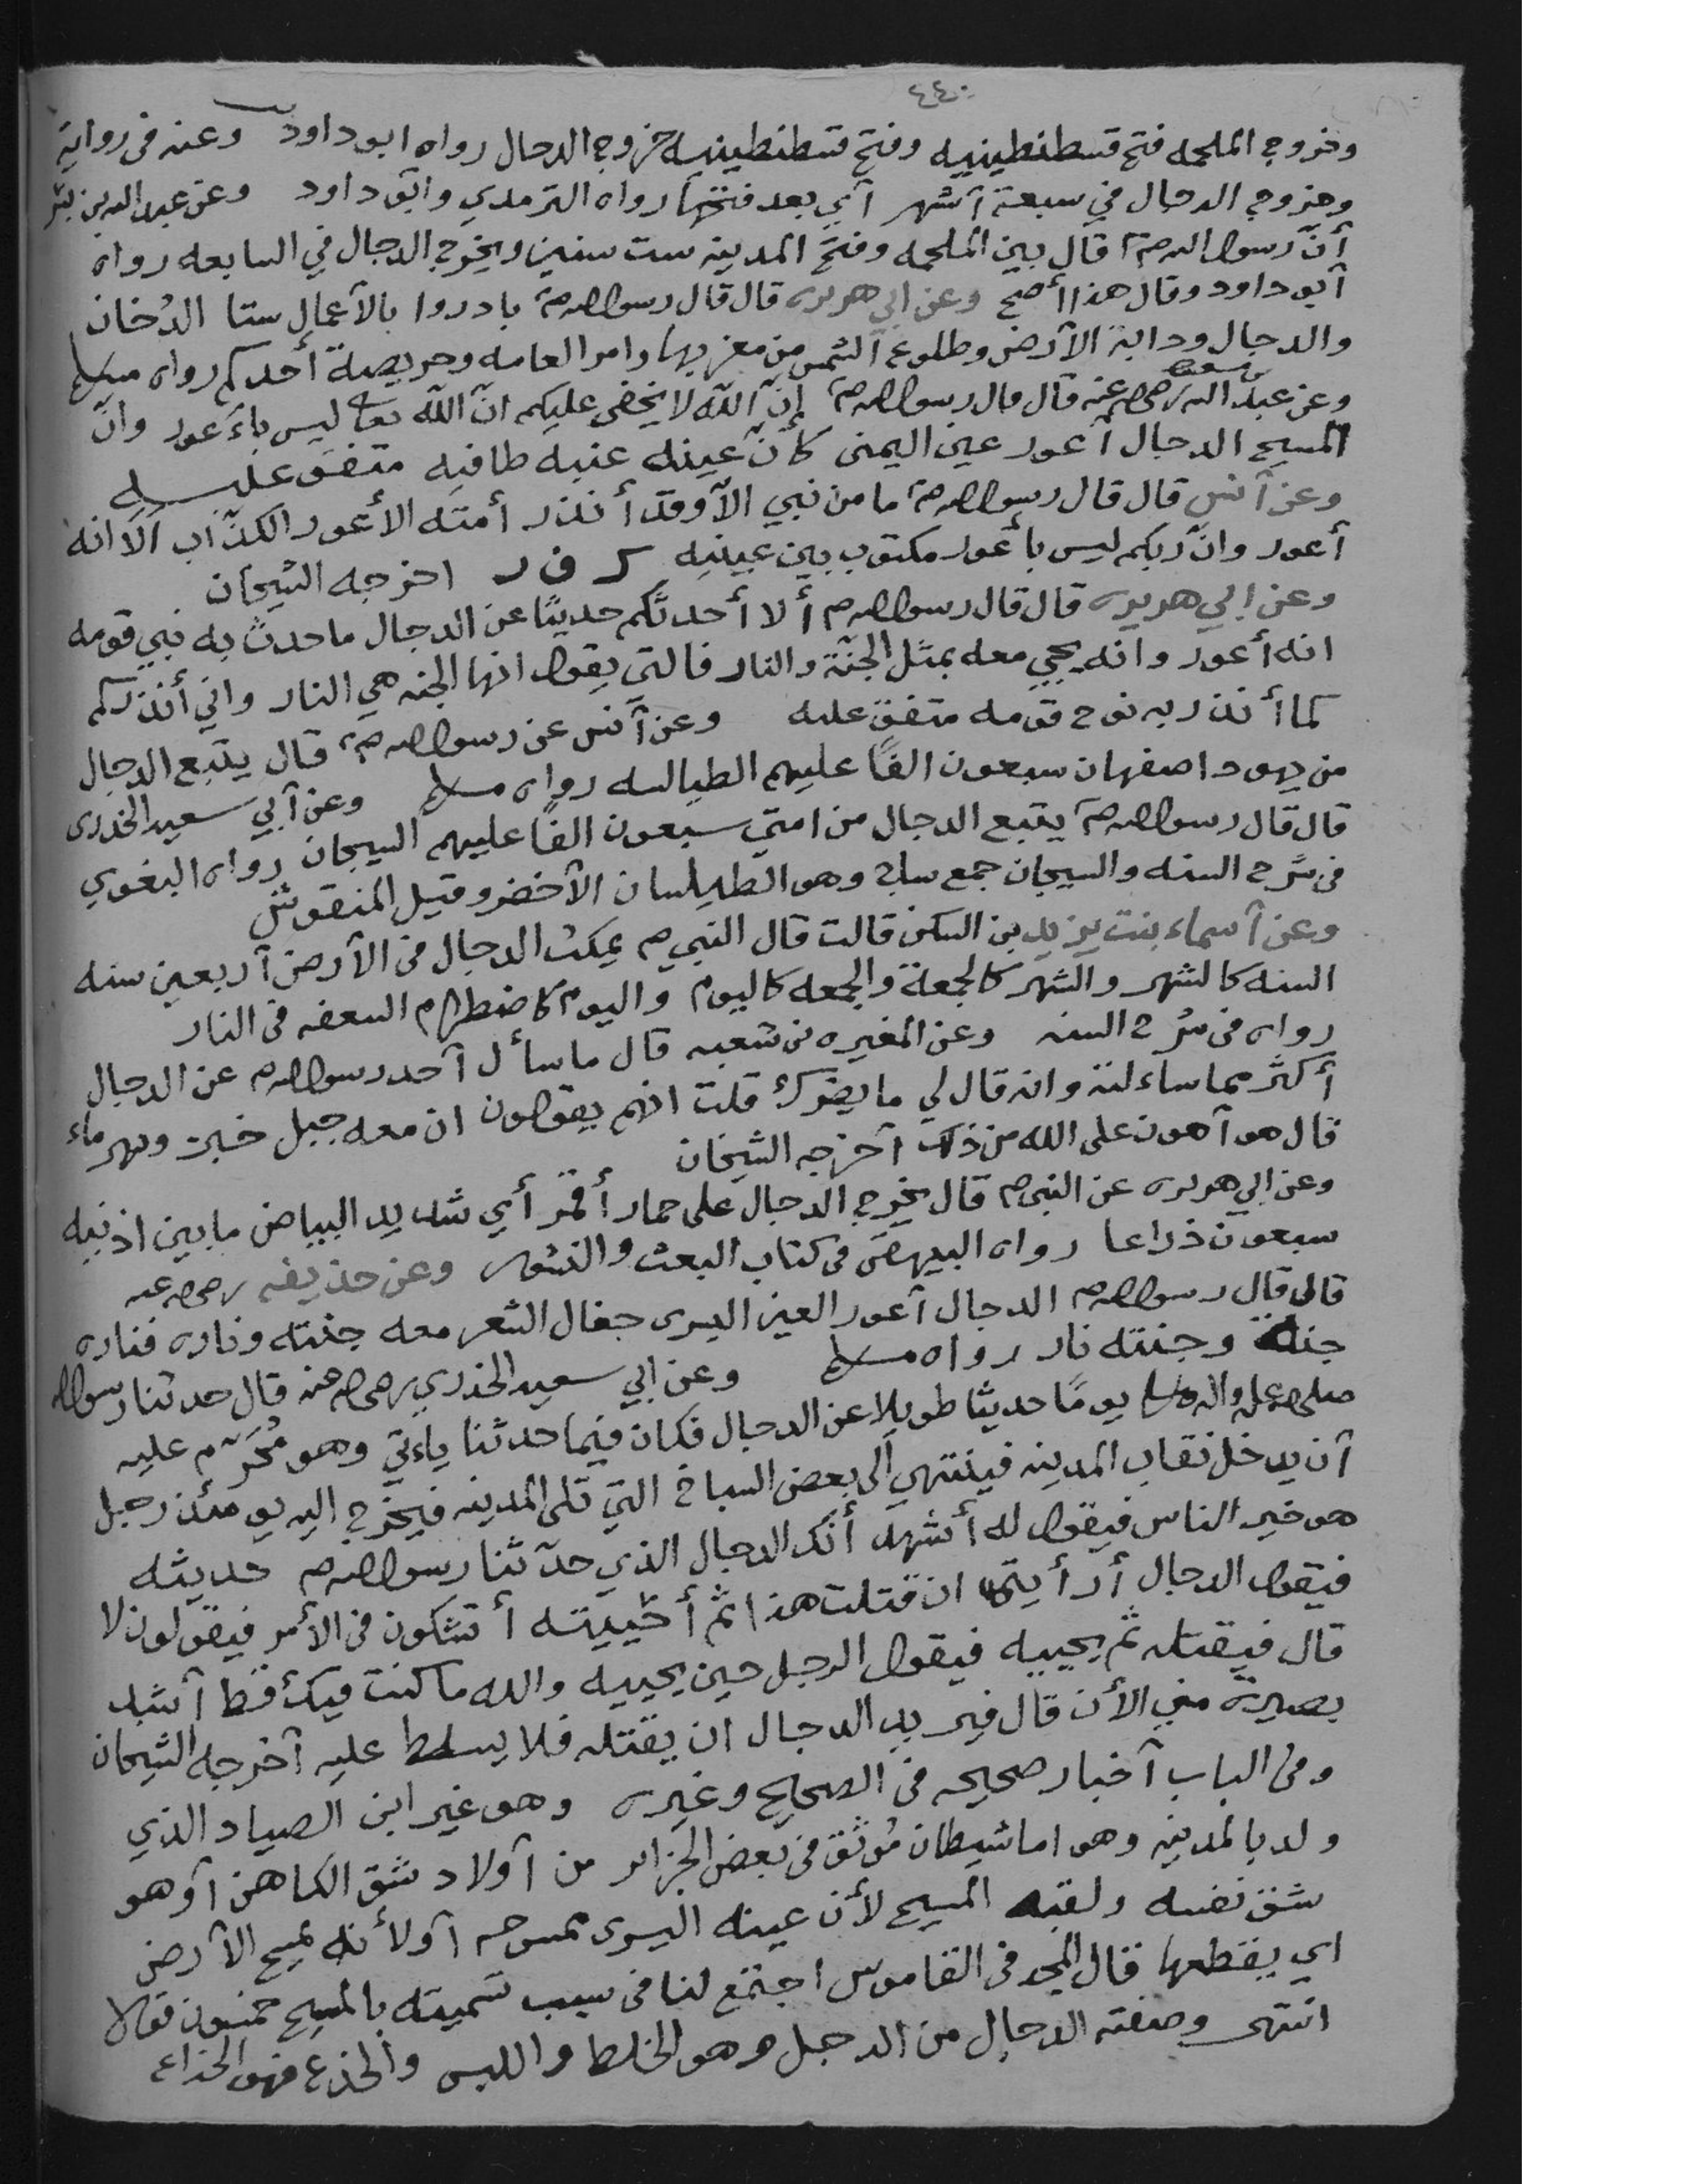 ٤٤٠
وخروج الملحمه فتح قسطنطينيه وفتح قسطنطينيه خروج الدجال رواه ابو داود وعنه فى رواية
وخروج الدجال في سبعة أشهر أي بعد فتحها رواه الترمدي وابو داود وعن عبد الله بن بشر
أنّ رسول الله صم قال بين الملحمه وفتح المدينه ست سنين ويخرج الدجال في السابعه رواه
أبو داود وقال هذا أصح وعن ابي هريره قال قال رسول الله صم بادروا بالأعمال ستا الدُخان
والدجال ودابة الأرض وطلوع الشمس من مغربها وامر العامه وحويصة أحدكم رواه مسلم
وعن عبد الله بن مسعود رضي الله عنه قال قال رسول الله صم إنّ الله لا يخفى عليكم انّ الله تعا ليس بأعور وانّ
المسيح الدجال أعور عين اليمنى كأنّ عينه عنبه طافيه متفق عليه
وعن أنس قال قال رسول الله صم ما من نبي الّا وقد أنذر أمته الأعور الكذّاب ألا انه
أعور وانّ ربكم ليس بأعور مكتوب بين عينيه ك ف ر اخرجه الشيخان
وعن ابي هريره قال قال رسول الله صم ألا أحدثكم حديثًا عن الدجال ما حدث به نبي قومه
انه أعور وانه يجي معه بمثل الجنّة والنار فالتي يقول انها الجنه هي النار واني أنذركم
كما أنذر به نوح قومه متفق عليه وعن أنس عن رسول الله صم قال يتبع الدجال
من يهود اصفهان سبعون الفًا عليهم الطيالسه رواه مسلم وعن أبي سعيد الخدرى
قال قال رسول الله صم يتبع الدجال من امتي سبعون الفًا عليهم السيجان رواه البغوي
فى شرح السنه والسيجان جمع ساج وهو الطيلسان الأخضر وقيل المنقوش
وعن أسماء بنت يزيد بن السكن قالت قال النبي صم يمكث الدجال فى الأرض أربعين سنه
السنه كالشهر والشهر كالجمعة والجمعه كاليوم واليوم كاضطرام السعفه فى النار
رواه فى شرح السنه وعن المغيره بن شعبه قال ما سأل أحد رسول الله صم عن الدجال
أكثر مما سائلته وانه قال لي ما يضرك قلت انهم يقولون ان معه جبل خبز ونهر ماء
قال هو أهون على الله من ذلك أخرجه الشيخان
وعن ابي هريره عن النبي صم قال يخرج الدجال على حمار أقمر أي شديد البياض ما بين اذنيه
سبعون ذراعا رواه البيهقي فى كتاب البعث والنشور وعن حذيفه رضي الله عنه
قال قال رسول الله صم الدجال أعور العين اليسرى جفال الشعر معه جنته وناره فناره
جنة وجنته نار رواه مسلم وعن ابي سعيد الخدري رضي الله عنه قال حدثنا رسول الله
صلى الله عليه واله وسلم يومًا حديثا طويلا عن الدجال فكان فيما حدثنا يائتي وهو مُحَرّم عليه
أن يدخل نقاب المدينه فينتهي الى بعض السباخ التي تلى المدينه فيخرج اليه يومئذ رجل
هو خير الناس فيقول له أشهد أنّك الدجال الذي حدّثنا رسول الله صم حديثه
فيقول الدجال أرأيتم ان قتلت هذا ثم أحييته أتشكون فى الأمر فيقولون لا
قال فيقتله ثم يحييه فيقول الرجل حين يحييه والله ما كنت فيك قط أشد
بصيرة مني الأن قال فيريد الدجال ان يقتله فلا يسلط عليه أخرجه الشيخان
وفى الباب أخبار صحيحه فى الصحاح وغيره وهو غير ابن الصياد الذي
ولد بالمدينه وهو اما شيطان مُوثق فى بعض الجزائر من أولاد شق الكاهن أو هو
شق نفسه ولقبه المسيح لأن عينه اليسرى ممسوحه أو لأنه يمسح الأرض
اي يقطعها قال المجد فى القاموس اجتمع لنا فى سبب تسميته بالمسيح خمسون قولا
انتهى وصفته الدجال من الدجل وهو الخلط واللبس والخدع فهو الخداع